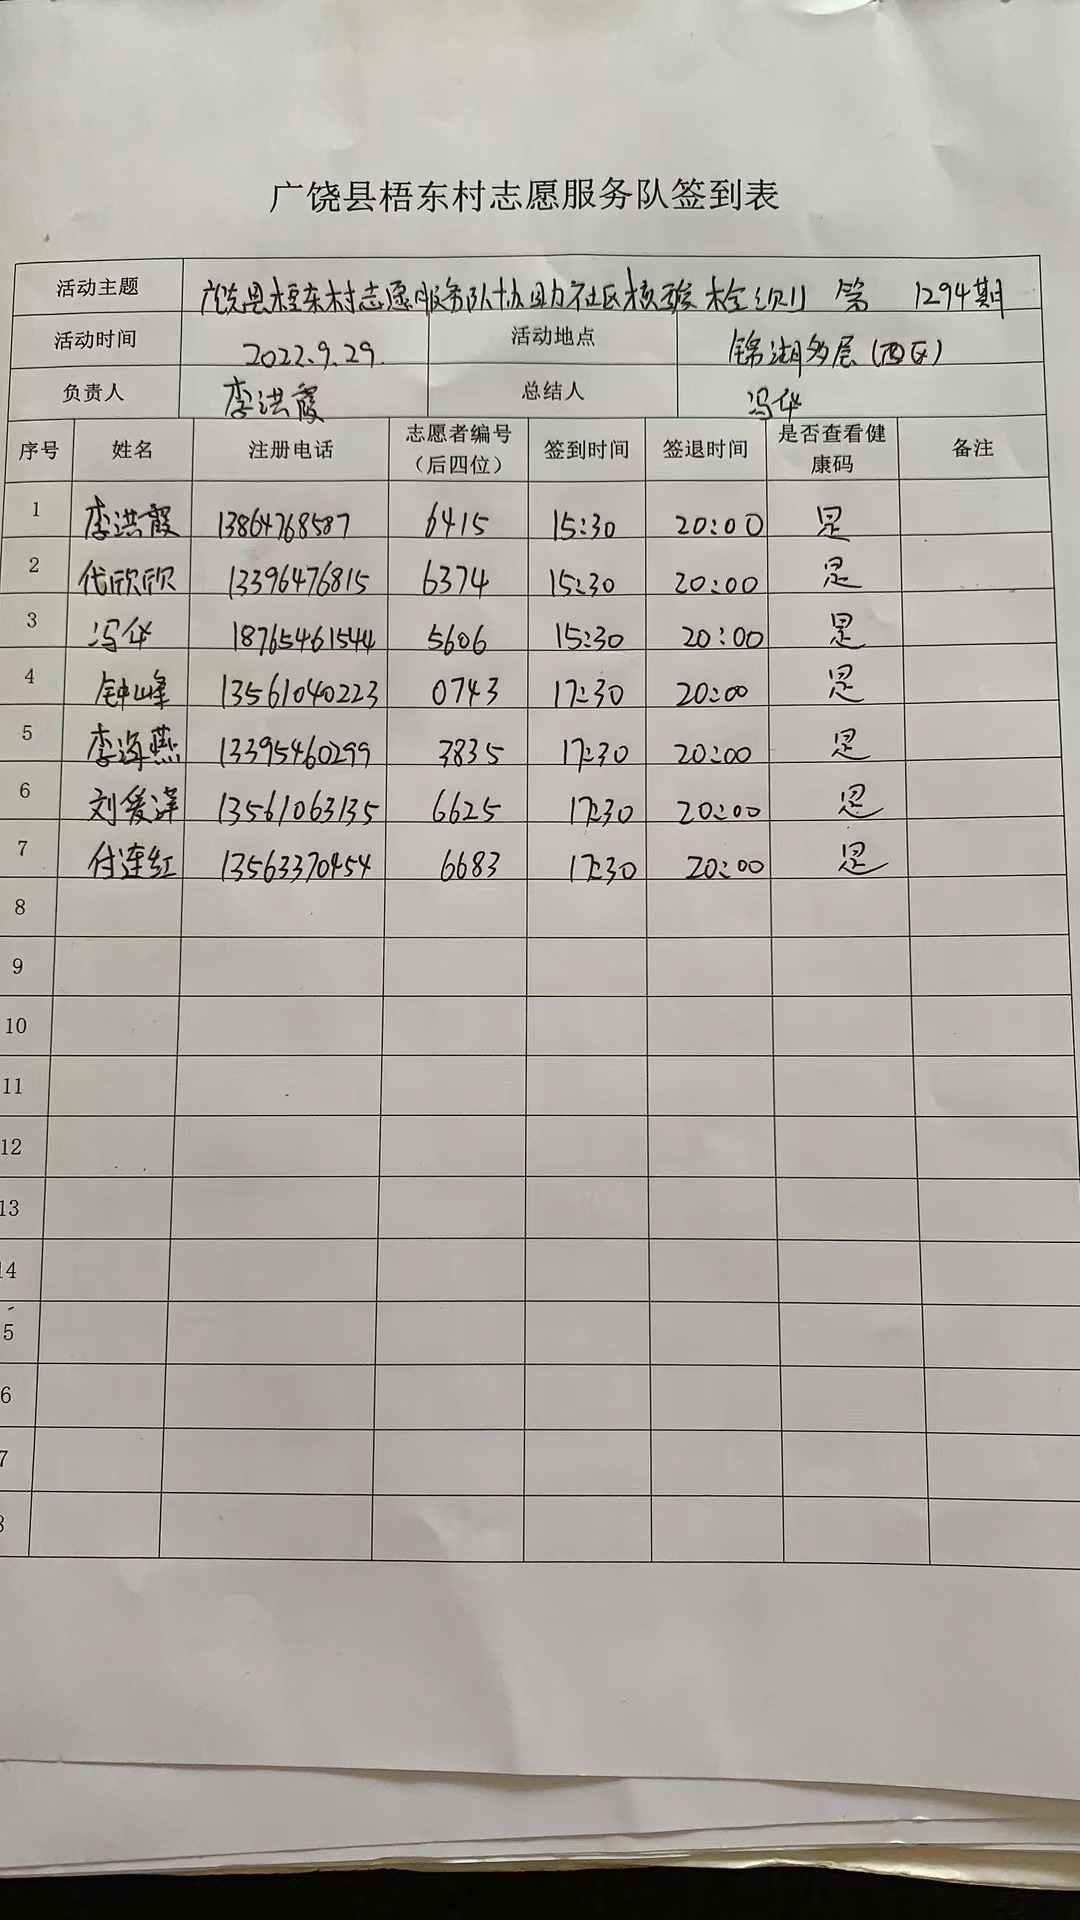 广饶县梧东村志愿服务队签到表
活动主题 广饶县梧东村志愿服务队协助社区核酸检测 第 1294期
活动时间 2022.9.29. 活动地点 锦湖多层(西区)
负责人 李洪霞 总结人 冯华
序号 姓名 注册电话 志愿者编号（后四位） 签到时间 签退时间 是否查看健康码 备注
1 李洪霞 13864768587 6415 15:30 20:00 是
2 代欣欣 13396476815 6374 15:30 20:00 是
3 冯华 18765461544 5606 15:30 20:00 是
4 钟峰 13561040223 0743 17:30 20:00 是
5 李海燕 13395460299 3835 17:30 20:00 是
6 刘爱萍 13561063135 6625 17:30 20:00 是
7 付连红 13563370454 6683 17:30 20:00 是
8
9
10
11
12
13
14
5
6
7
8